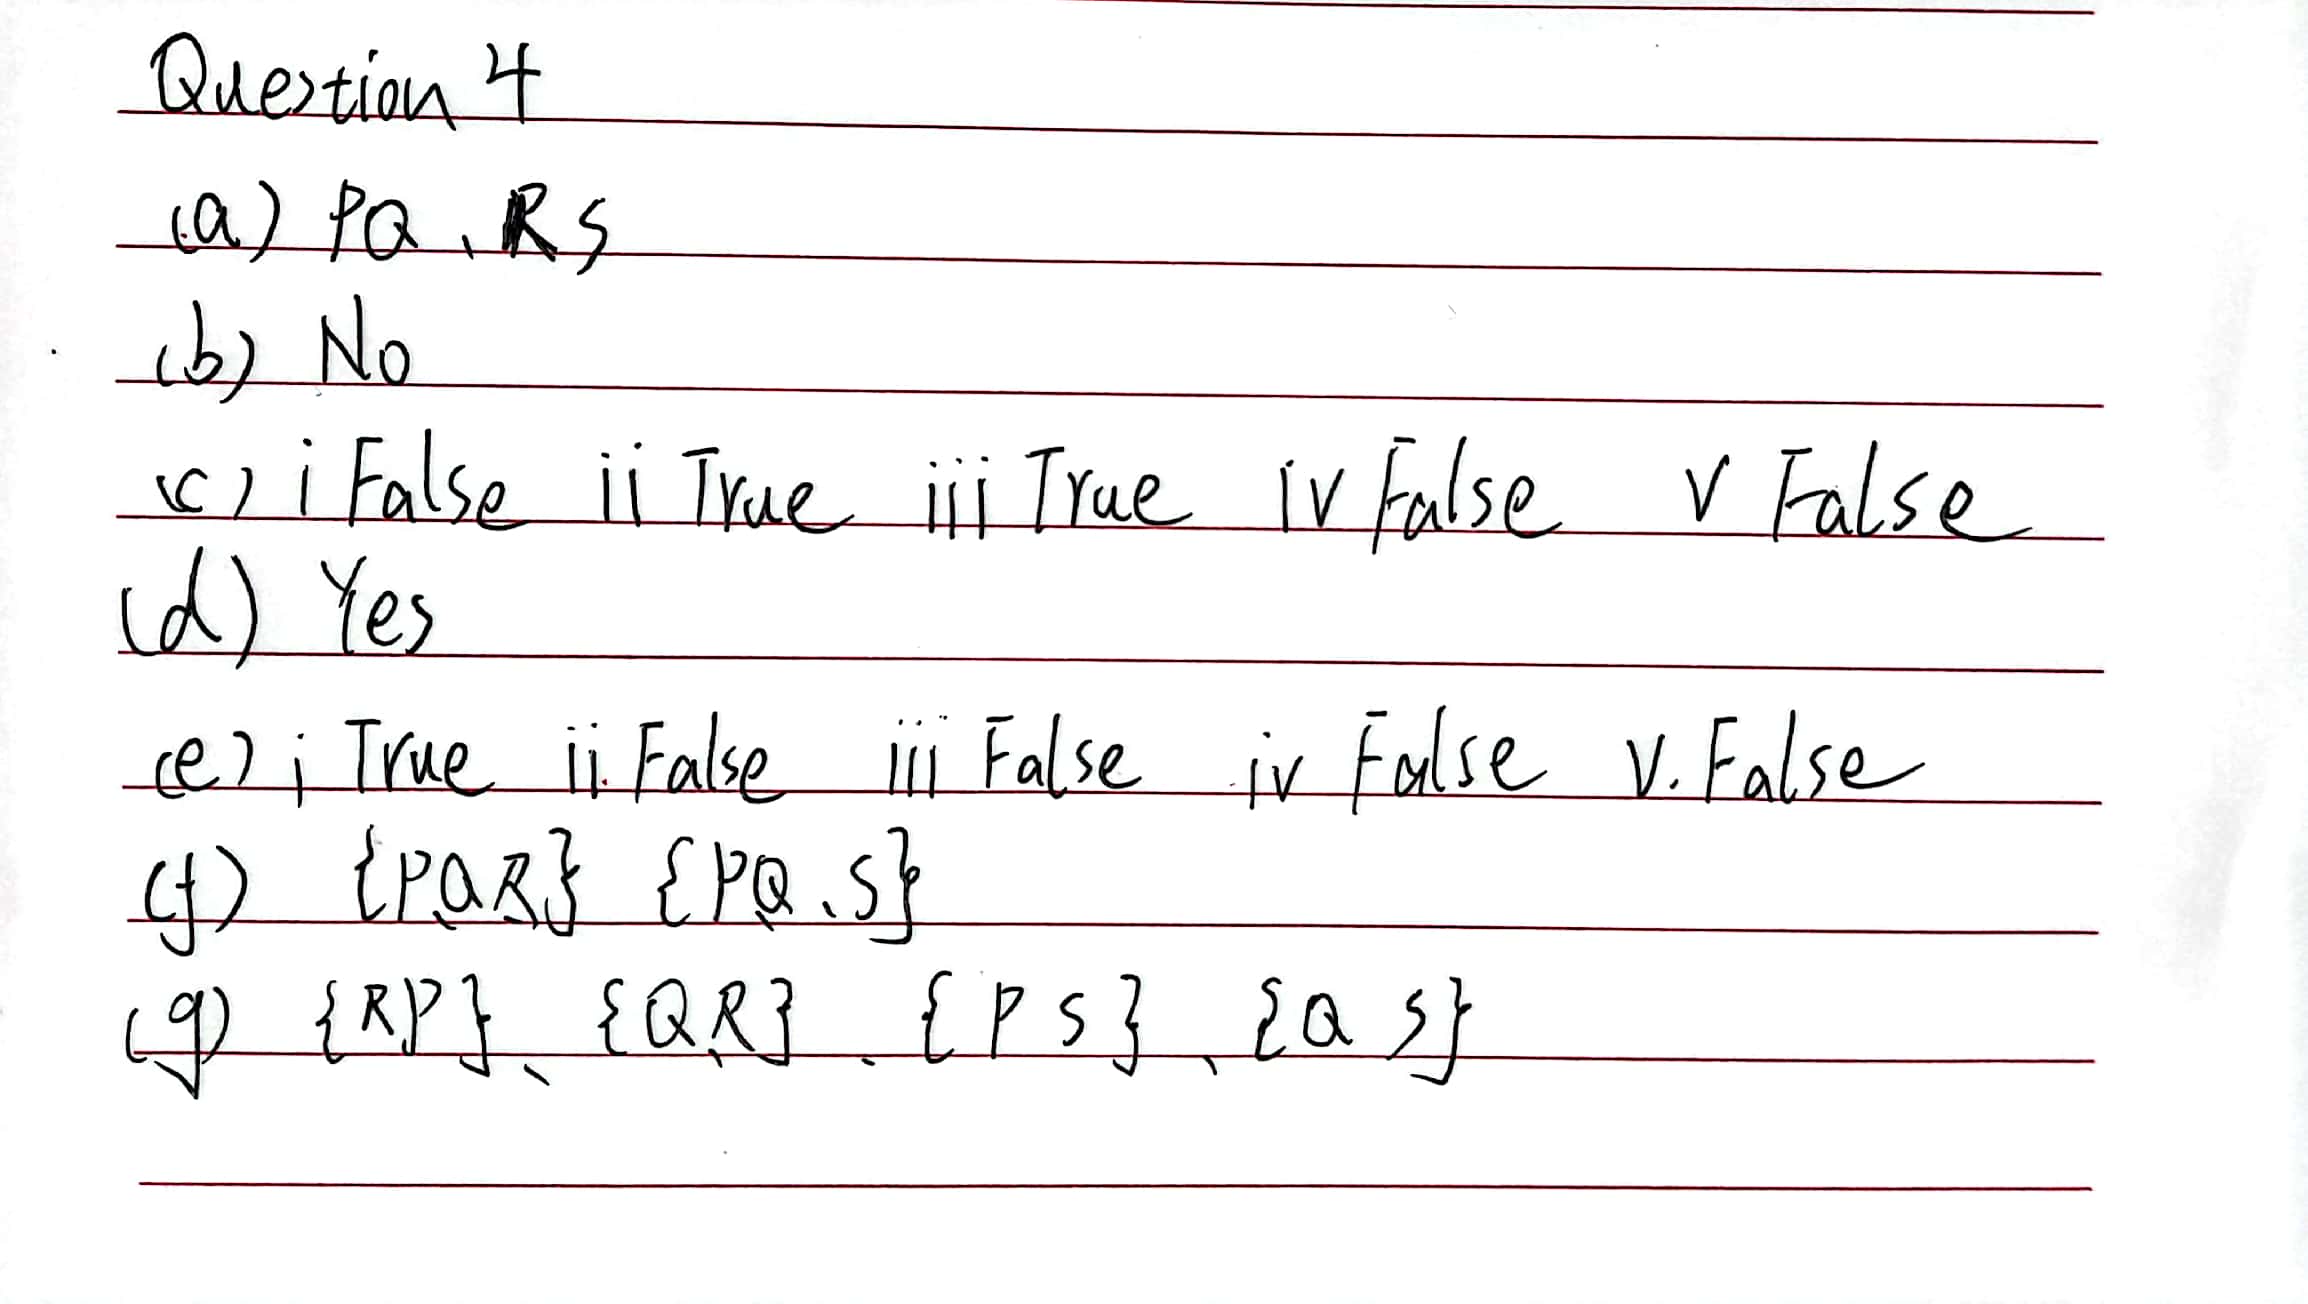 Question 4
(a) PQ、RS
(b) No
(c) i False ii True iii True iv False v False
(d) Yes
(e) i True ii. False iii False iv False v. False
(f) {P、Q、R} {P、Q、S}
(g) {R、P}、{Q、R}、{P S}、{Q S}